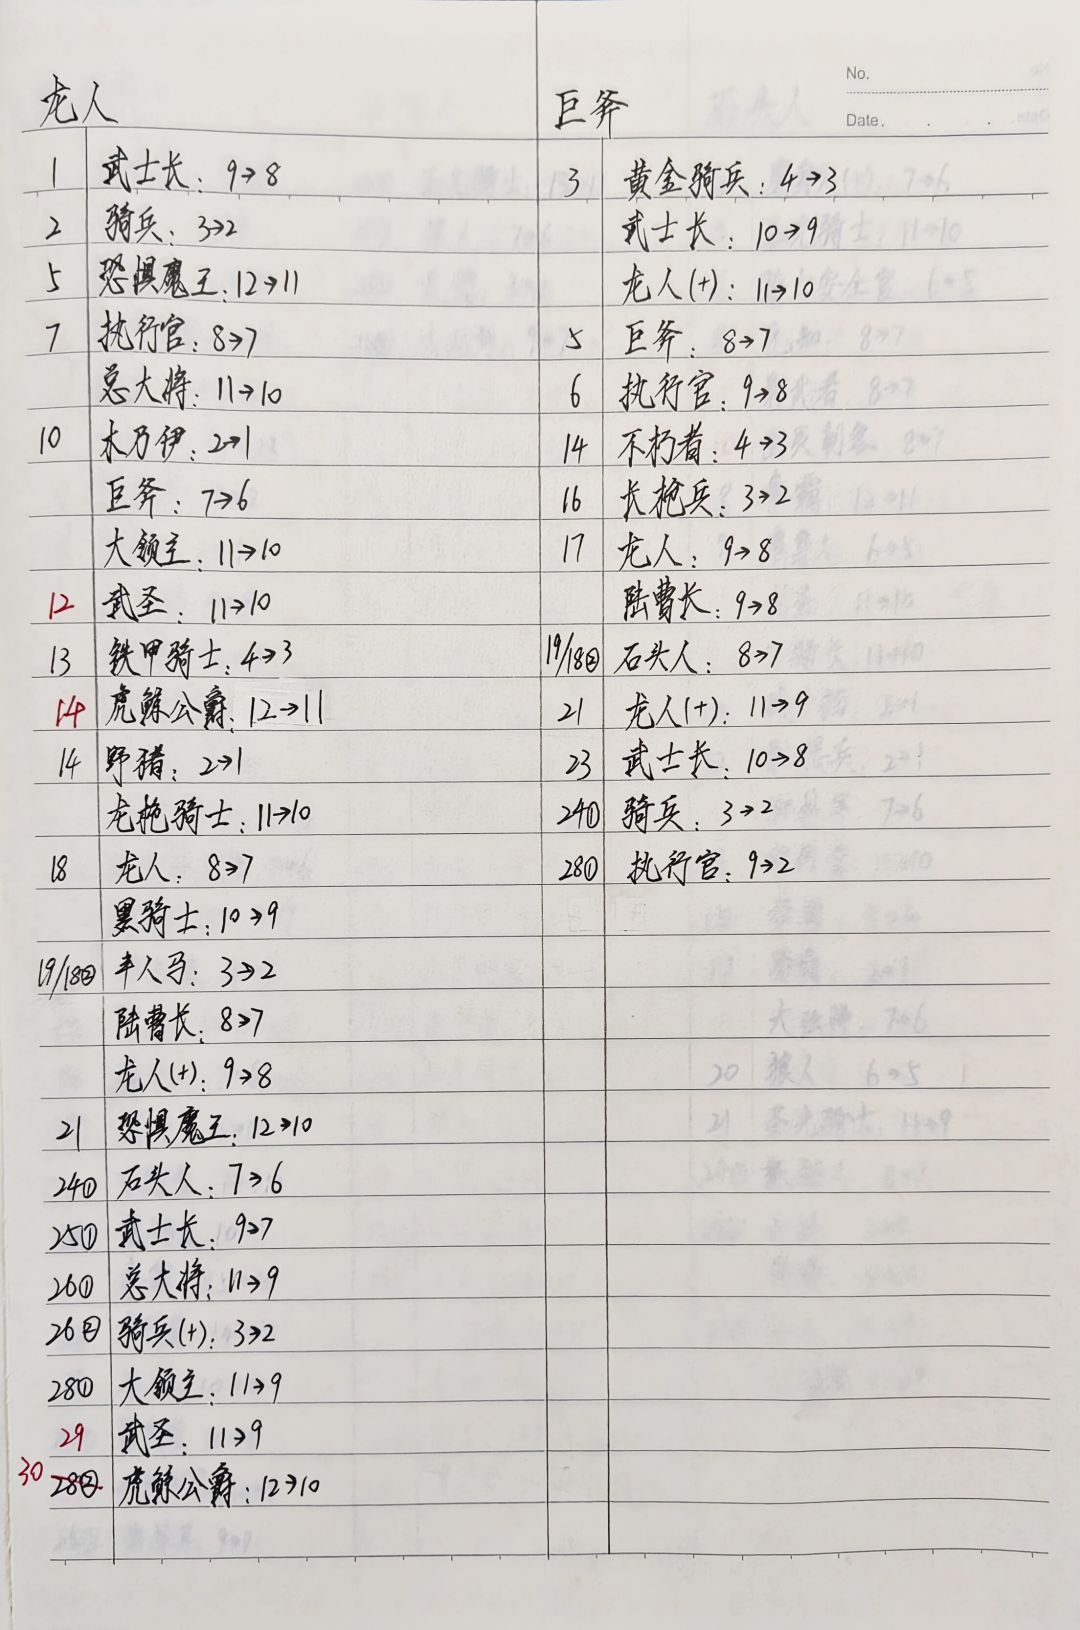 No.
Date.
龙人
1 武士长: 9→8
2 骑兵: 3→2
5 恐惧魔王: 12→11
7 执行官: 8→7
总大将: 11→10
10 木乃伊: 2→1
巨斧: 7→6
大领主: 11→10
12 武圣: 11→10
13 铁甲骑士: 4→3
14 虎鲸公爵: 12→11
14 野猪: 2→1
龙枪骑士: 11→10
18 龙人: 8→7
黑骑士: 10→9
19/18② 半人马: 3→2
陆曹长: 8→7
龙人(+): 9→8
21 恐惧魔王: 12→10
24① 石头人: 7→6
25① 武士长: 9→7
26① 总大将: 11→9
26② 骑兵(+): 3→2
28① 大领主: 11→9
29 武圣: 11→9
30 28② 虎鲸公爵: 12→10
巨斧
3 黄金骑兵: 4→3
武士长: 10→9
龙人(+): 11→10
5 巨斧: 8→7
6 执行官: 9→8
14 不朽者: 4→3
16 长枪兵: 3→2
17 龙人: 9→8
陆曹长: 9→8
19/18② 石头人: 8→7
21 龙人(+): 11→9
23 武士长: 10→8
24① 骑兵: 3→2
28① 执行官: 9→2